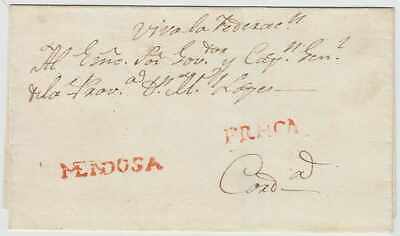 Viva la Federac.n
Al Exmo Sor Gov.dor y Cap.n Gen.l
de la Prov.a D.n M.l Lopez
FRANCA
MENDOSA
Cord.a